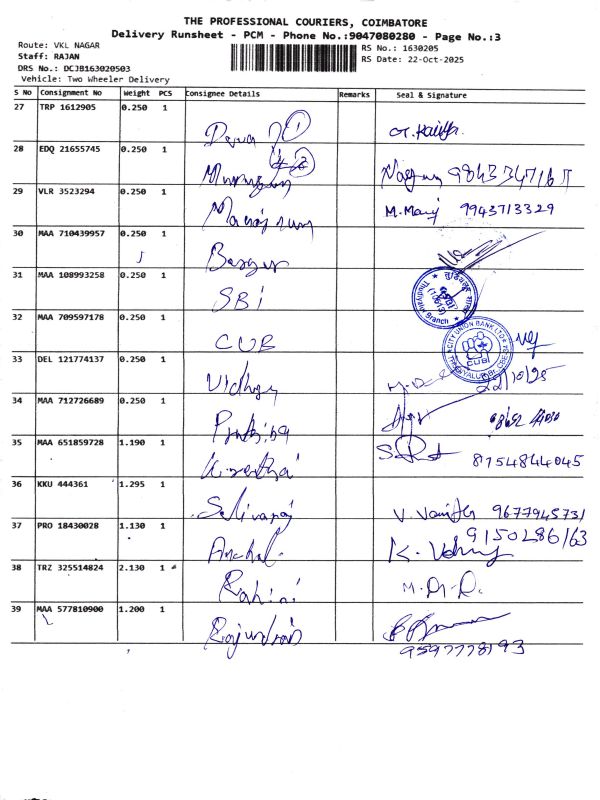 THE PROFESSIONAL COURIERS, COIMBATORE
Delivery Runsheet - PCM - Phone No.:9047080280 - Page No.:3
Route: VKL NAGAR
RS No.: 1630205
Staff: RAJAN
RS Date: 22-Oct-2025
DRS No.: DCJB163020503
Vehicle: Two Wheeler Delivery
S No Consignment No Weight PCS Consignee Details Remarks Seal & Signature
27 TRP 1612905 0.250 1
28 EDQ 21655745 0.250 1
Murugan
29 VLR 3523294 0.250 1
M. Manj 9943713329
30 MAA 710439957 0.250 1
31 MAA 108993258 0.250 1
SBI
Thudiyalur Branch
32 MAA 709597178 0.250 1
CUB
CITY UNION BANK LTD
CUB
33 DEL 121774137 0.250 1
22/10/25
34 MAA 712726689 0.250 1
35 MAA 651859728 1.190 1
8754844045
36 KKU 444361 1.295 1
Selivaraj
V. Vanitha 9677945731
37 PRO 18430028 1.130 1
Anchal.
9150286163
38 TRZ 325514824 2.130 1
Rohini
39 MAA 577810900 1.200 1
9597778193